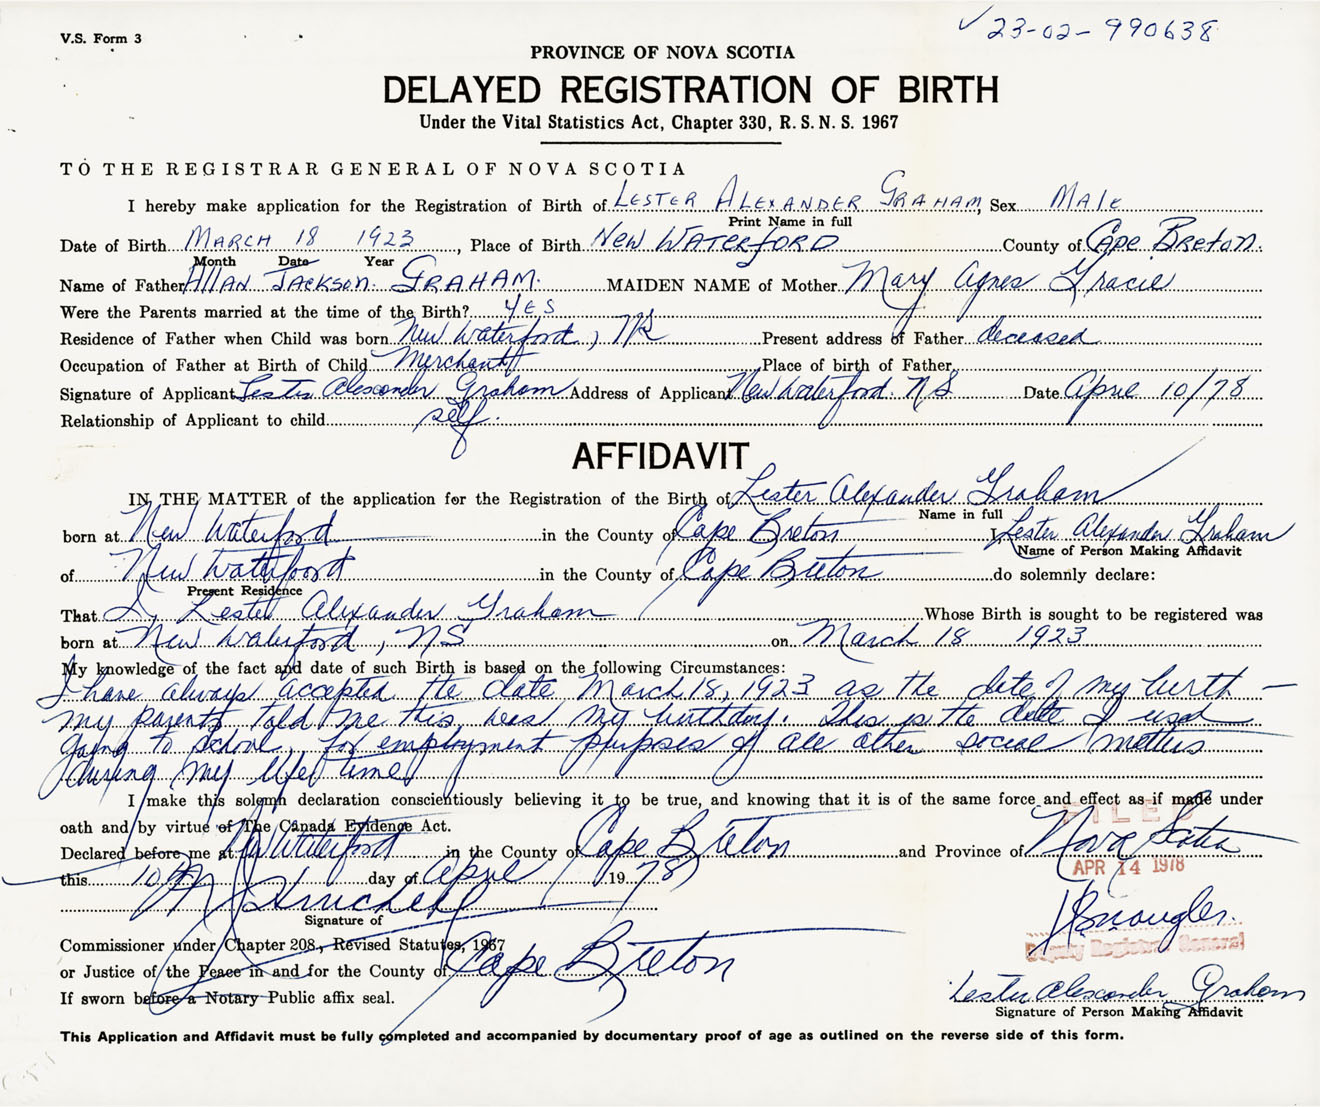 V.S. Form 3
✓ 23-02-990638
PROVINCE OF NOVA SCOTIA
DELAYED REGISTRATION OF BIRTH
Under the Vital Statistics Act, Chapter 330, R. S. N. S. 1967
TO THE REGISTRAR GENERAL OF NOVA SCOTIA
I hereby make application for the Registration of Birth of LESTER ALEXANDER GRAHAM, Sex Male
Print Name in full
Date of Birth MARCH 18 1923, Place of Birth NEW WATERFORD County of Cape Breton.
Month Date Year
Name of Father Allan Jackson. GRAHAM. MAIDEN NAME of Mother Mary Agnes Gracie
Were the Parents married at the time of the Birth? YES
Residence of Father when Child was born New Waterford, NS Present address of Father deceased
Occupation of Father at Birth of Child Merchant Place of birth of Father
Signature of Applicant Lester Alexander Graham Address of Applicant New Waterford. NS Date April 10/78
Relationship of Applicant to child self.
AFFIDAVIT
IN THE MATTER of the application for the Registration of the Birth of Lester Alexander Graham
Name in full
born at New Waterford in the County of Cape Breton I, Lester Alexander Graham
Name of Person Making Affidavit
of New Waterford in the County of Cape Breton do solemnly declare:
Present Residence
That I, Lester Alexander Graham Whose Birth is sought to be registered was
born at New Waterford, NS on March 18 1923
My knowledge of the fact and date of such Birth is based on the following Circumstances:
I have always accepted the date March 18, 1923 as the date of my birth —
my parents told me this was my birthday. This is the date I used
going to school, for employment purposes & all other social matters
during my life time
I make this solemn declaration conscientiously believing it to be true, and knowing that it is of the same force and effect as if made under
oath and by virtue of The Canada Evidence Act.
FILED
Declared before me at New Waterford in the County of Cape Breton and Province of Nova Scotia
APR 14 1978
this 10th day of April 1978
Signature of
Commissioner under Chapter 208, Revised Statutes, 1967
Deputy Registrar General
or Justice of the Peace in and for the County of Cape Breton
If sworn before a Notary Public affix seal.
Lester Alexander Graham
Signature of Person Making Affidavit
This Application and Affidavit must be fully completed and accompanied by documentary proof of age as outlined on the reverse side of this form.